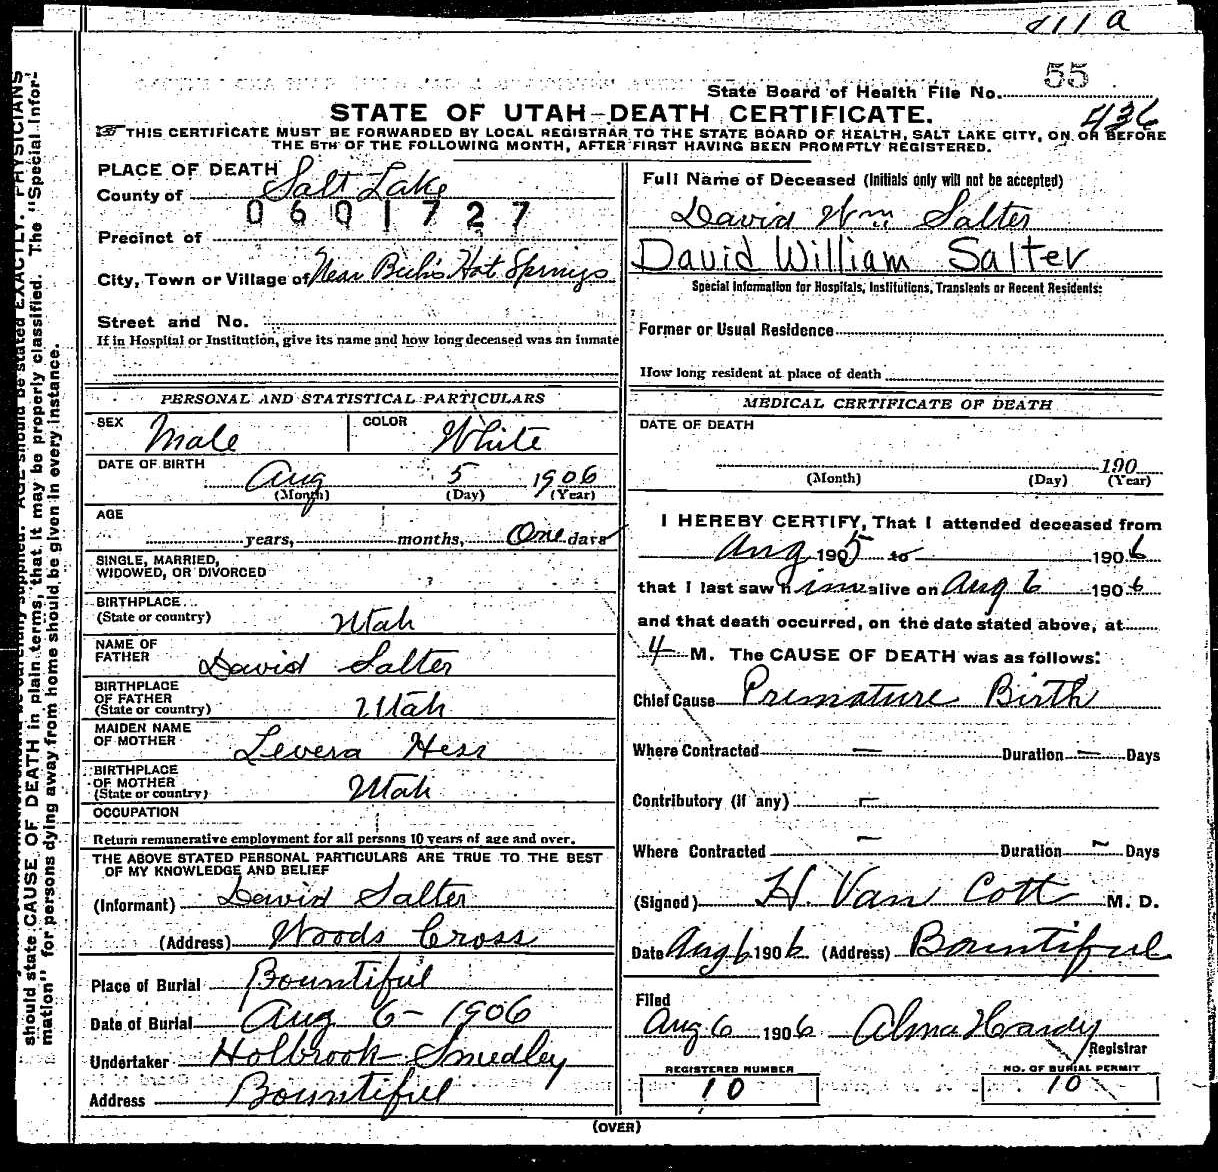 11 a
55
State Board of Health File No.
STATE OF UTAH—DEATH CERTIFICATE.
436
THIS CERTIFICATE MUST BE FORWARDED BY LOCAL REGISTRAR TO THE STATE BOARD OF HEALTH, SALT LAKE CITY, ON OR BEFORE
THE 5TH OF THE FOLLOWING MONTH, AFTER FIRST HAVING BEEN PROMPTLY REGISTERED.
PLACE OF DEATH
County of Salt Lake
0601727
Precinct of
City, Town or Village of Near Beck's Hot Springs
Street and No.
If in Hospital or Institution, give its name and how long deceased was an inmate
PERSONAL AND STATISTICAL PARTICULARS
SEX Male COLOR White
DATE OF BIRTH Aug 5 1906
(Month) (Day) (Year)
AGE
years, months, One days
SINGLE, MARRIED,
WIDOWED, OR DIVORCED
BIRTHPLACE
(State or country) Utah
NAME OF
FATHER David Salter
BIRTHPLACE
OF FATHER
(State or country) Utah
MAIDEN NAME
OF MOTHER Levera Hess
BIRTHPLACE
OF MOTHER
(State or country) Utah
OCCUPATION
Return remunerative employment for all persons 10 years of age and over.
THE ABOVE STATED PERSONAL PARTICULARS ARE TRUE TO THE BEST
OF MY KNOWLEDGE AND BELIEF
(Informant) David Salter
(Address) Woods Cross
Place of Burial Bountiful
Date of Burial Aug 6- 1906
Undertaker Holbrook-Smedley
Address Bountiful
Full Name of Deceased (Initials only will not be accepted)
David Wm Salter
David William Salter
Special Information for Hospitals, Institutions, Transients or Recent Residents:
Former or Usual Residence
How long resident at place of death
MEDICAL CERTIFICATE OF DEATH
DATE OF DEATH
190
(Month) (Day) (Year)
I HEREBY CERTIFY, That I attended deceased from
Aug 1905 to 1906
that I last saw him alive on Aug 6 1906
and that death occurred, on the date stated above, at
4 M. The CAUSE OF DEATH was as follows:
Chief Cause Premature Birth
Where Contracted — Duration — Days
Contributory (if any) —
Where Contracted — Duration ~ Days
(Signed) H. Van Cott M. D.
Date Aug 6 1906 (Address) Bountiful
Filed
Aug 6 1906 Alma Hardy
Registrar
REGISTERED NUMBER
10
NO. OF BURIAL PERMIT
10
(OVER)
AGE should be stated EXACTLY. PHYSICIANS
should state CAUSE OF DEATH in plain terms, that it may be properly classified. The "Special Infor-
mation" for persons dying away from home should be given in every instance.